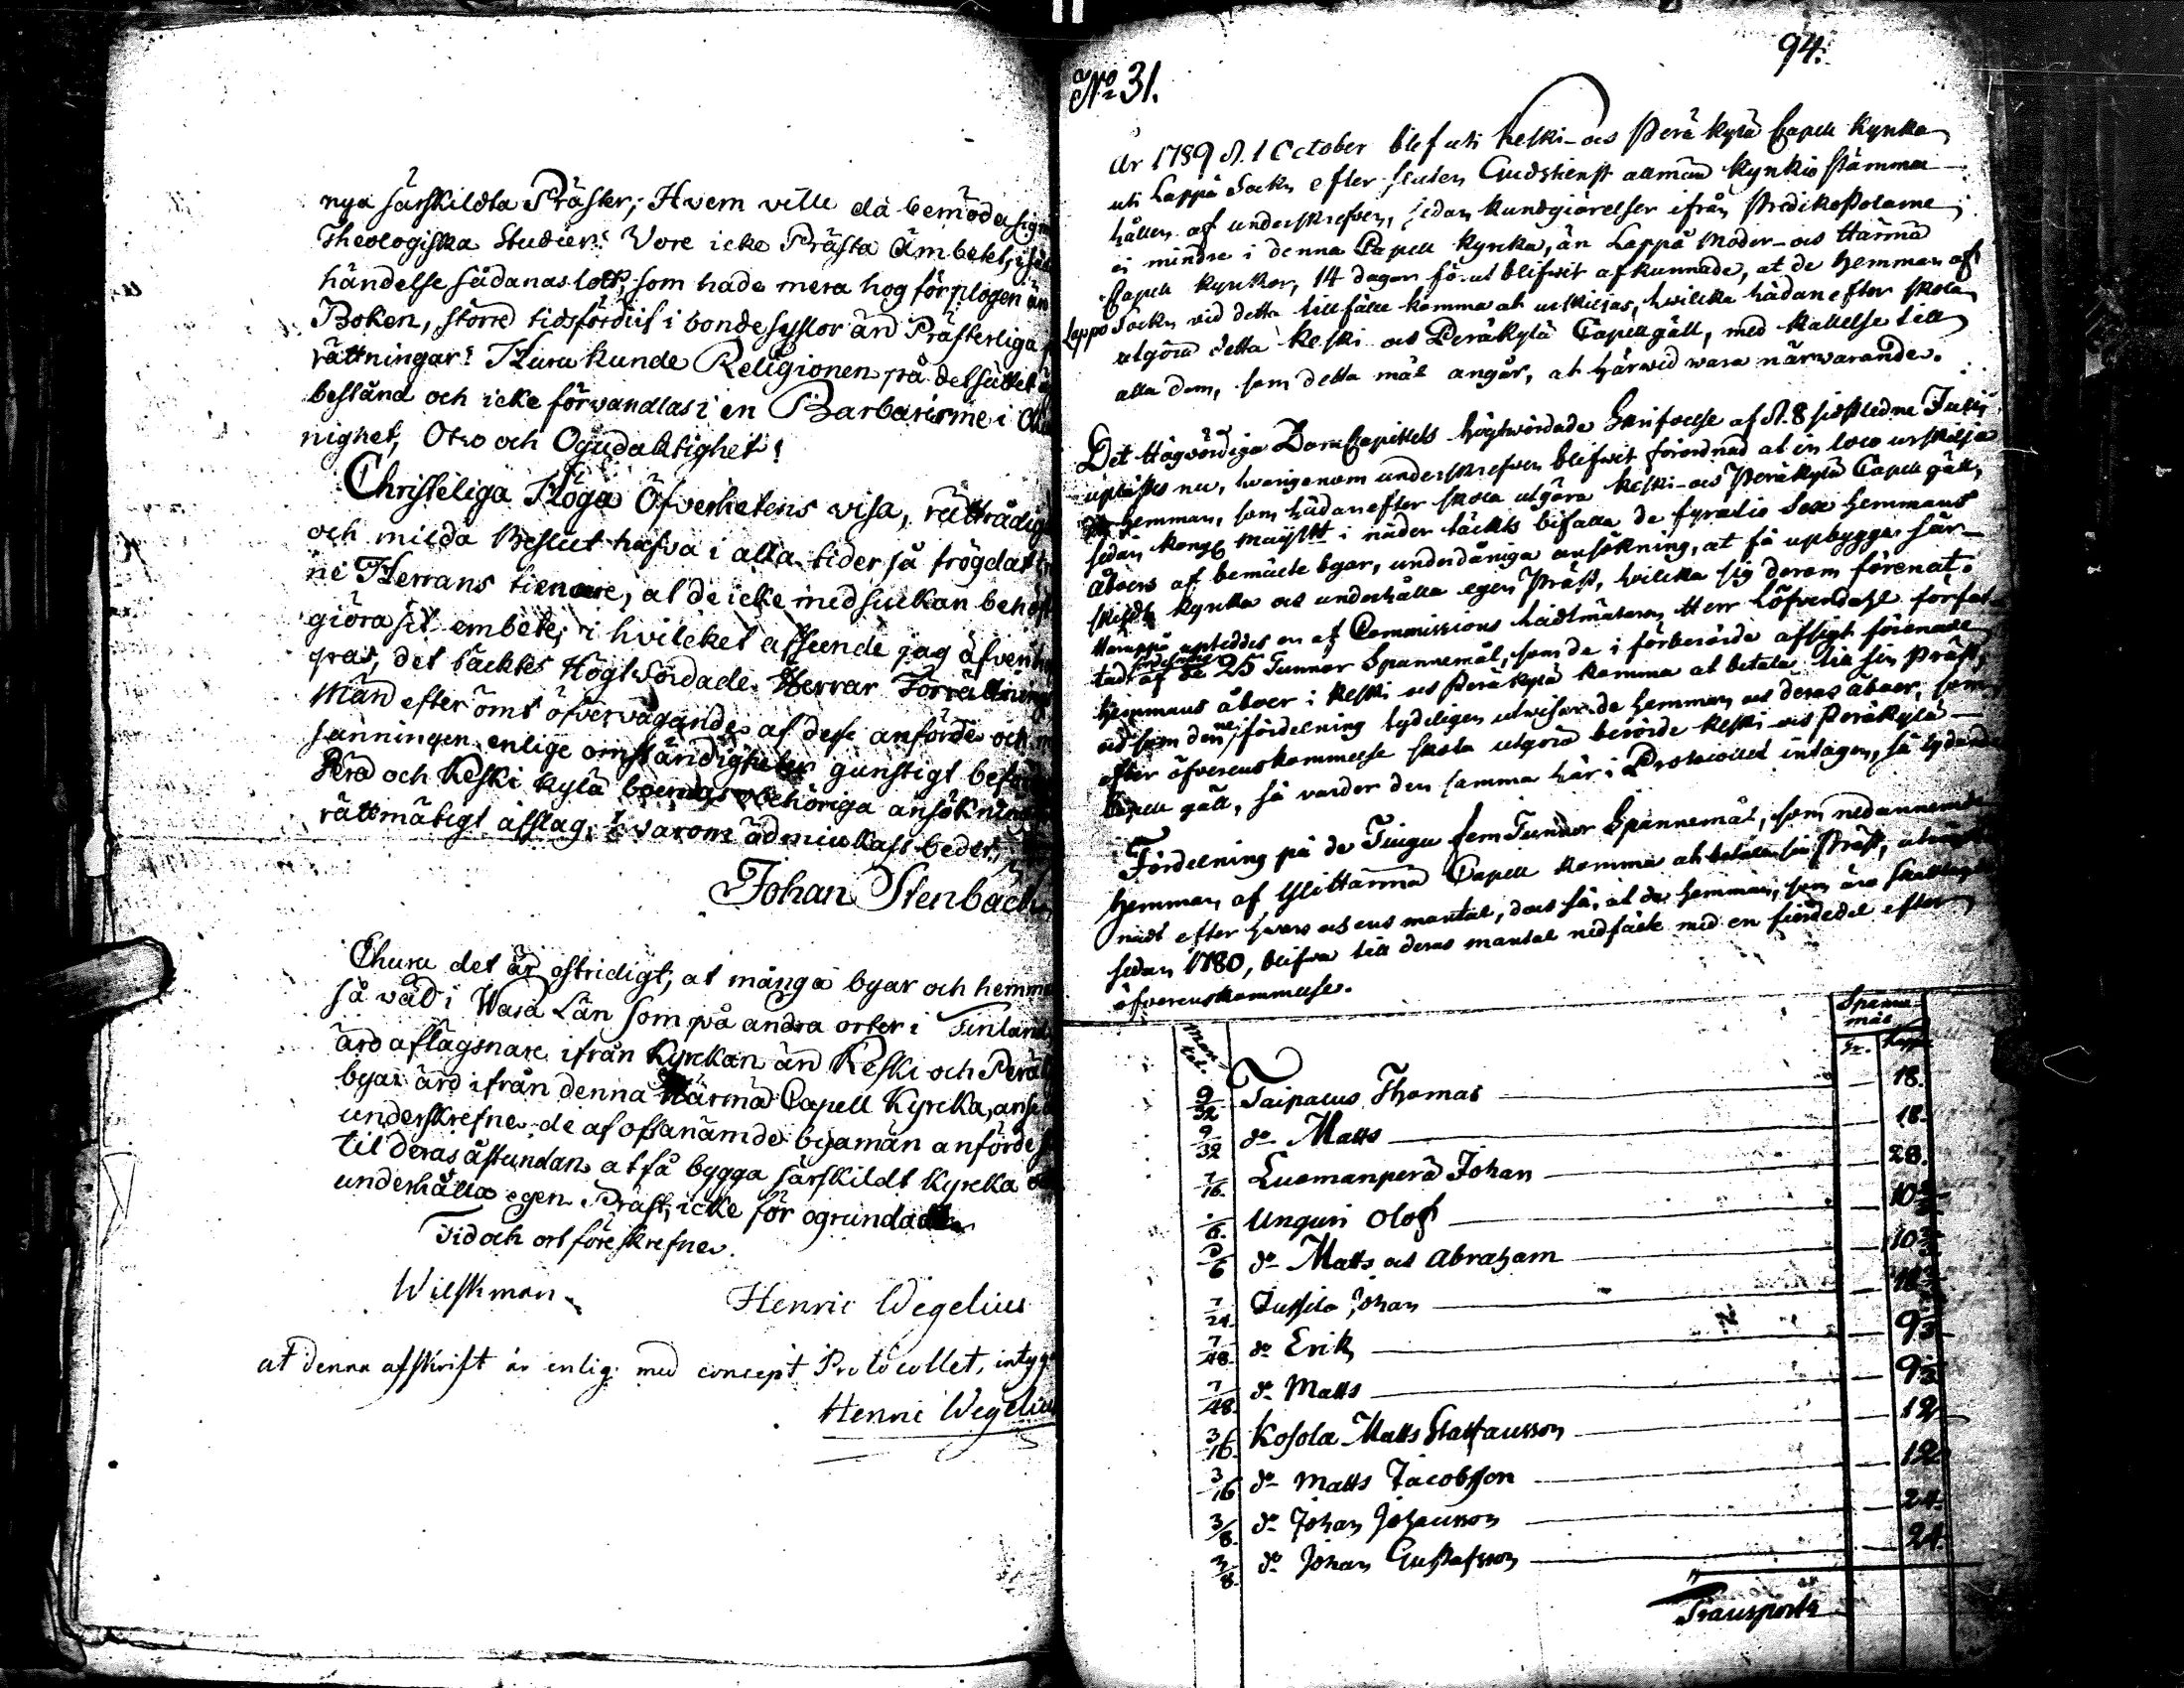 nya särskildta Präster; Hvem ville då bemöda sig
Theologiska Studier? Vore icke Prästa Ämbetet, i
händelse sådanas lott, som hade mera hog för plogen än
Boken, större tidsfördrif i bondesysslor än Prästerliga
rättningar? Huru kunde Religionen på det sättet
bestånd och icke förvandlas i en Barbarisme i
nighet, Otro och Ogudaktighet!
Christeliga Höga Öfverhetens visa, rättrådiga
och milda Beslut hafva i alla tider så frögdat
ne Herrans tienare, at de icke med suckan
giöra sit embete; i hvilcket afseende jag äfven
gras, det täcktes Högtvördade Herrar Förrättnings
Män efter ömt öfvervägande af desse anförde och
sanningen enlige omständigheter gunstigt
Perä och Keski kylä boernas obehöriga ansökning
rättmätigt afslag, hvarom ödmiukast beder,
Johan Stenbäck
Ehuru det är ostridigt, at många byar och hemman
så väl i Wasa Län som på andra orter i Finland
äro aflägsnare ifrån Kyrckan än Keski och Perä
byar äro ifrån denna Härmä Capell Kyrcka, anse
underskrefne de af oftanämde byamän anförde
til deras åstundan at få bygga särskildt Kyrcka och
underhålla egen Präst, icke för ogrundade
Tid och ort föreskrefne.
Wilskman
Henric Wegelius
at denna afskrift är enlig med concept Protocollet, intygar
Henric Wegelius
94.
No 31.
År 1789 d. 1 October blef uti Keski- och Perä kylä Capell Kyrka
uti Lappå Sockn efter slutan Gudstienst allmän Kyrkio stämma
hållen af underskrefven, sedan kundgiörelser ifrån Predikostolarne
ei mindre i denna Capell Kyrka, än Lappå Moder- och Härmä
Capell Kyrkor, 14 dagar förut blifvit afkunnade, at de hemman af
Lappo Sockn vid detta tillfälle komma at urskiljas, hvilcka hädanefter skola
utgöra detta Keski och Peräkylä Capellgäll, med kallelse till
alla dem, som detta mål angår, at härwid wara närwarande.
Det Högvördiga DomCapitlets högtwördade Skrifvelse af d. 8 sistledne Julii
uplästes nu, hvarigenom underskrefven blifvit förordnad at in loco urskilja
de hemman, som hädanefter skola utgöra Keski- och Peräkylä Capell gäll,
sedan Kongl Maijstt i nåder täckts bifalla de fyratio Sex hemmans
Åboers af bemälte byar, underdåniga ansökning, at få upbygga sär-
skildt Kyrka och underhålla egen Präst, hvilcka sig derom förenat.
Haruppå upteddes en af Commissions Landtmätaren Herr Löfvendahl förfat-
tad fördelning af de 25 Tunnor Spannemål, som de i förberörde afsigt förenade
hemmans åboer i Keski och Peräkylä komma at betala till sin Präst,
och som denne fördelning tydeligen utwisar de hemman och deras åboer, som
efter öfverenskommelse skola utgöra berörde Keski- och Peräkylä
Capell gäll, så varder den samma här i Protocollet intagen, så lydande
Fördelning på de Tiugu fem Tunnor Spannemål, som nedannemde
hemman af YliHärmä Capell komma at betala sin Präst,
nadt efter hvars och ens mantal, dock så, at de hemman, som äro skattlagde
sedan 1780, blifva till deras mantal nedsatte med en fierdedel efter
öfverenskommelse.
Man
tal. Spanne
mål
Tr. Kapp
9/32 Taipalus Thomas 18.
9/32 do Matts 18.
7/16. Luomanperä Johan 28.
Unguri Olof 10
/6 do Matts och Abraham 10 2/3
7/24. Jussila Johan
7/48. do Erik 9 1/3
7/48. do Matts 9 1/3
3/16. Kosola Matts Staffansson 12
3/16 do Matts Jacobsson 12
3/8. do Johan Johansson 24.
3/8. do Johan Gustafsson 24.
Transport